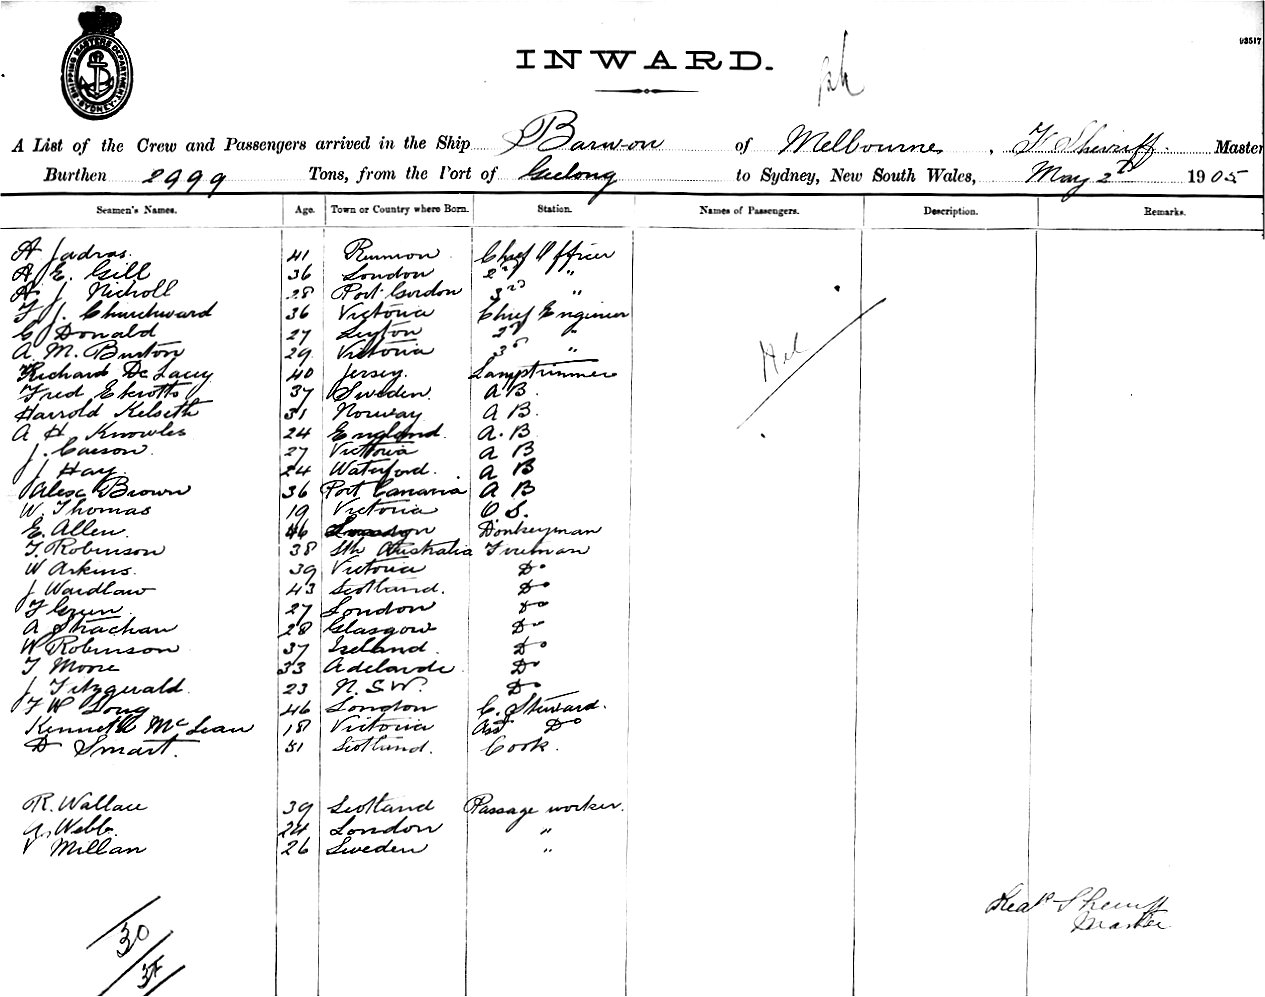 SHIPPING MASTERS DEPARTMENT SYDNEY
93517
INWARD.
A List of the Crew and Passengers arrived in the Ship Barwon of Melbourne, F Sherriff Master
Burthen 2999 Tons, from the Port of Geelong to Sydney, New South Wales, May 2nd 1905
Seamen's Names. Age. Town or Country where Born. Station. Names of Passengers. Description. Remarks.
A Jadras 41 Reunion Chief Officer
A E. Gill 36 London 2nd "
A J Nicholl 28 Port Gordon 3rd "
F J. Churchward 36 Victoria Chief Engineer
C Donald 27 Leyton 2d "
A. M. Burton 29 Victoria 3d "
Richard De Lacey 40 Jersey. Lamptrimmer
Fred Ekrotts 37 Sweden. A B.
Harrold Kelseth 31 Norway A B.
A H Knowles 24 England. A. B
J. Carson. 27 Victoria A B
J Hay. 24 Waterford. A B
Alex Brown 36 Port A B
W. Thomas 19 Victoria O. S.
E. Allen. 46 Donkeyman
T. Robinson 38 Sth Australia Fireman
W Arkins. 39 Victoria Do
J Wardlaw 43 Scotland. Do
F Green. 27 London Do
A Strachan 28 Glasgow Do
W Robinson 37 Ireland. Do
T Moore 33 Adelaide Do
J Fitzgerald. 23 N. S W. Do
F W Long 46 London C. Steward.
Kenneth McLean 18 Victoria Asst Do
D Smart. 51 Scotland. Cook.
Nil
R. Wallace 39 Scotland Passage worker.
A. Webb. 24 London "
V Millan 26 Sweden "
Sherriff
Master
30